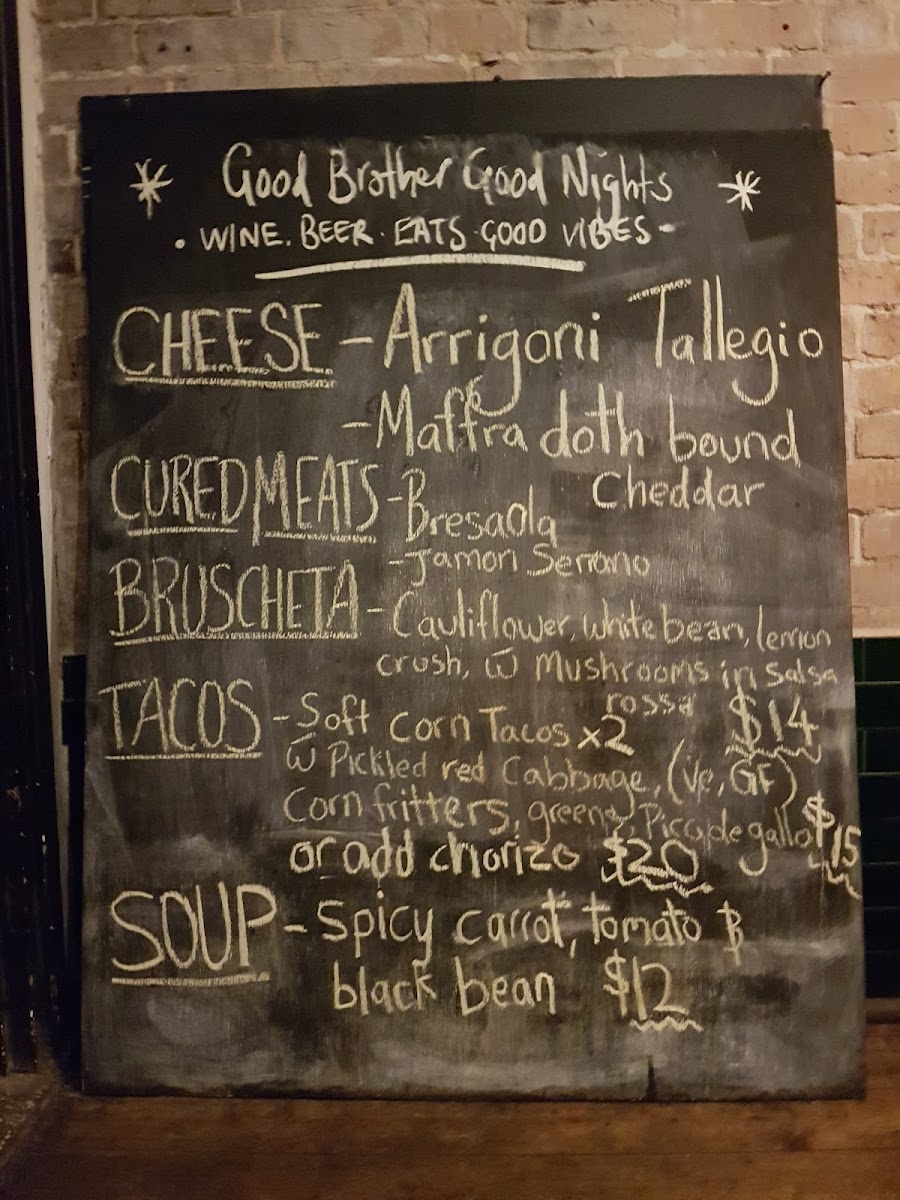 Good Brother Good Nights
· WINE. BEER. EATS. GOOD VIBES -
CHEESE - Arrigoni Tallegio
- Maffra cloth bound
Cheddar
CURED MEATS - Bresaola
- Jamon Serrano
BRUSCHETA - Cauliflower, white bean, lemon
crush, w̄ Mushrooms in Salsa
rossa $14
TACOS - Soft Corn Tacos x2
w̄ Pickled red Cabbage, (Ve, GF)
Corn fritters, greens, Pico de gallo $15
or add chorizo $20
SOUP - Spicy carrot, tomato &
black bean $12